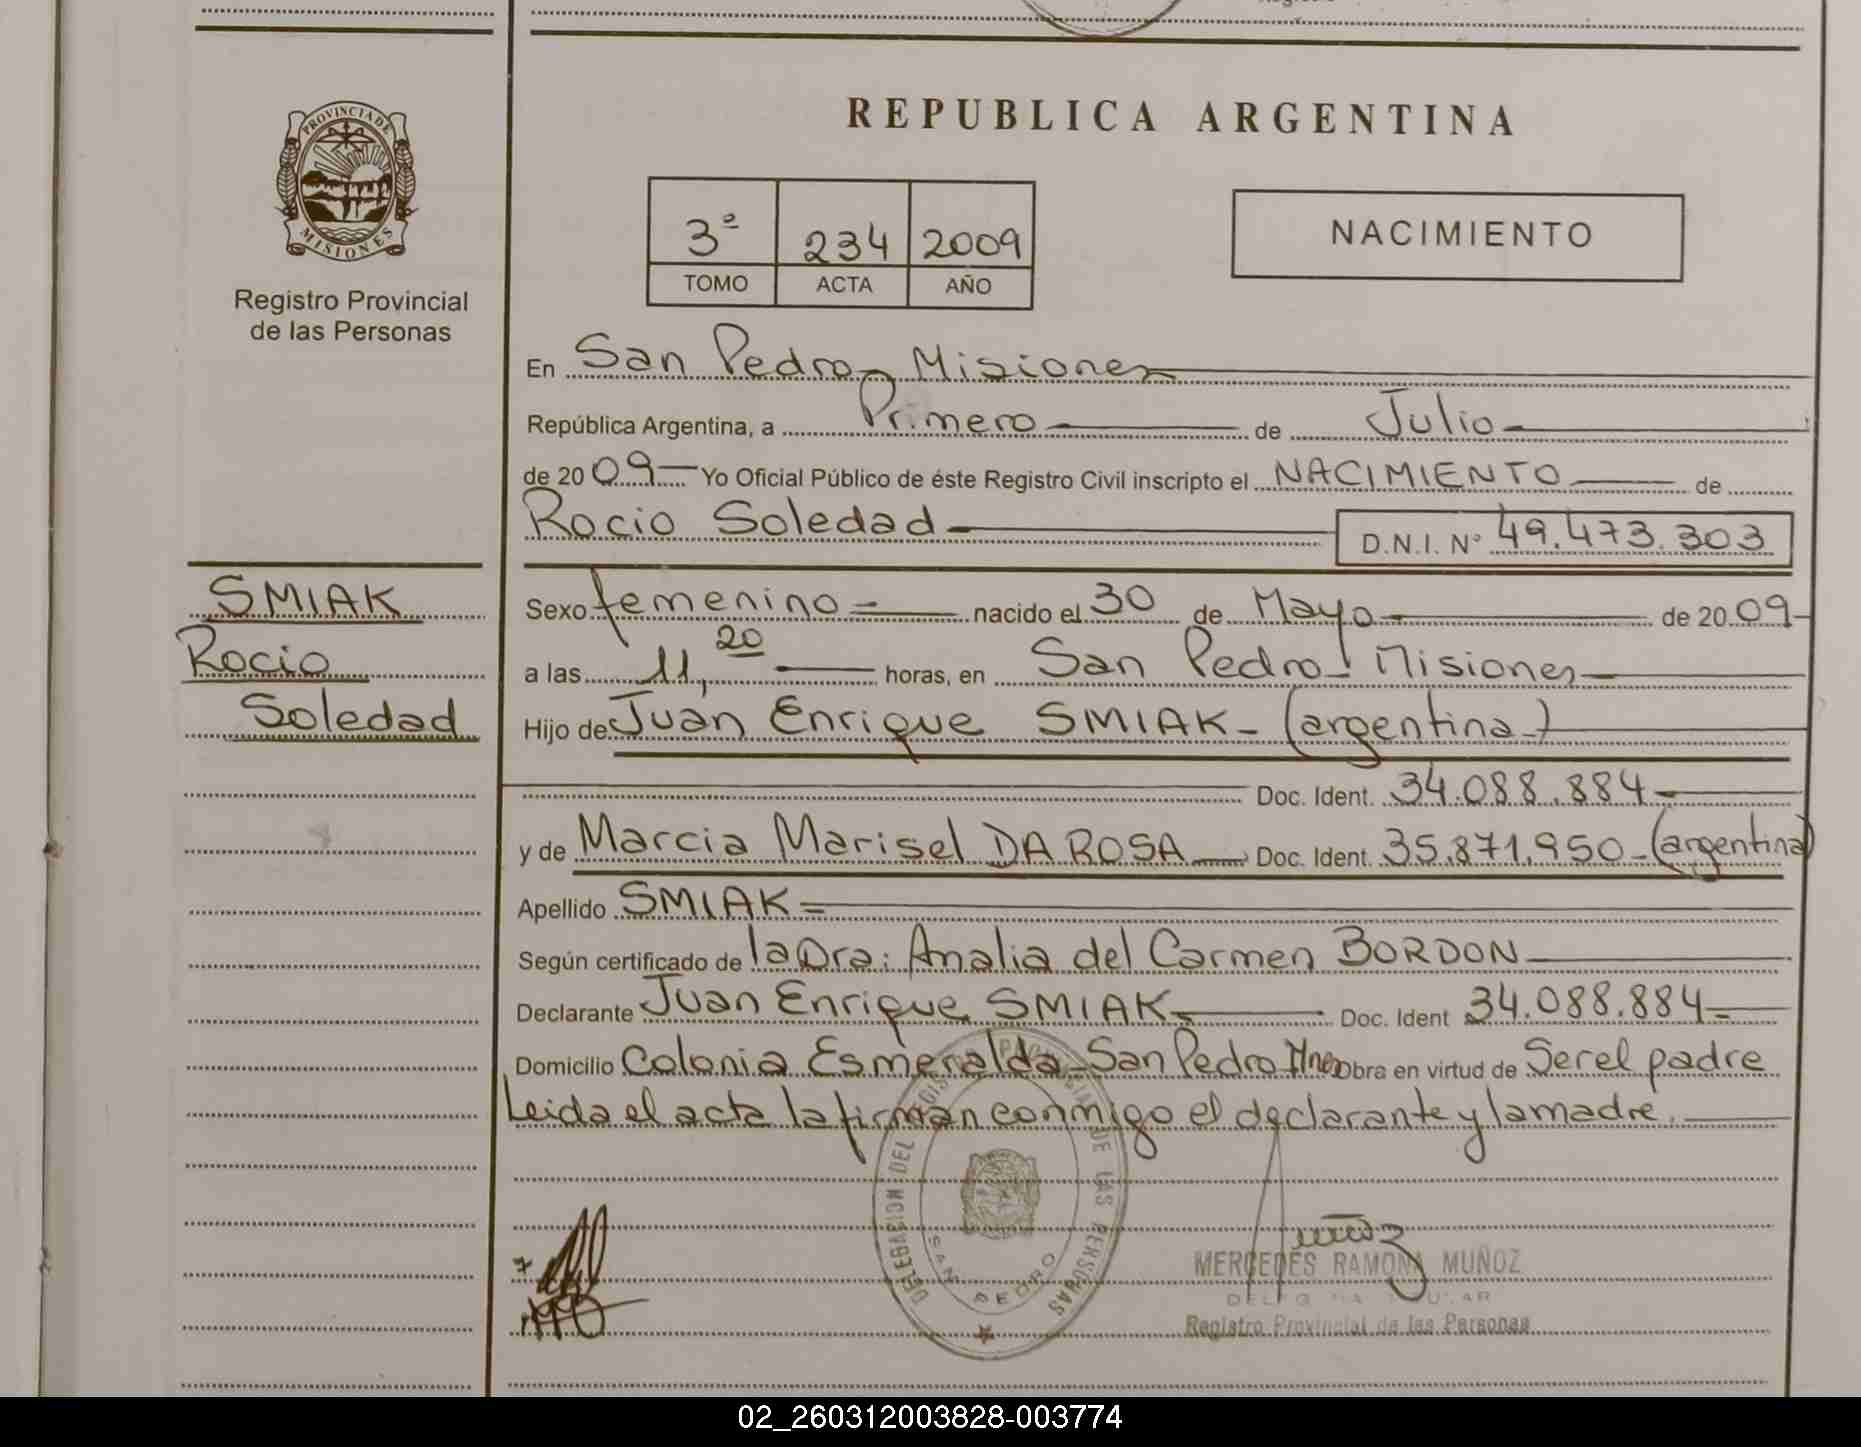 REPUBLICA ARGENTINA
PROVINCIA DE
MISIONES
Registro Provincial
de las Personas
3º 234 2009
TOMO ACTA AÑO
NACIMIENTO
En San Pedro, Misiones
República Argentina, a Primero de Julio
de 2009 Yo Oficial Público de éste Registro Civil inscripto el NACIMIENTO de
Rocio Soledad D.N.I. Nº 49.473.303
SMIAK
Rocio
Soledad
Sexo femenino nacido el 30 de Mayo de 2009
a las 11,20 horas, en San Pedro - Misiones
Hijo de Juan Enrique SMIAK - (argentina-)
Doc. Ident. 34.088.884
y de Marcia Marisel DA ROSA Doc. Ident. 35.871.950 - (argentina)
Apellido SMIAK
Según certificado de la Dra: Analia del Carmen BORDON
Declarante Juan Enrique SMIAK Doc. Ident 34.088.884
Domicilio Colonia Esmeralda - San Pedro Mnes Obra en virtud de Ser el padre
Leida el acta la firman conmigo el declarante y la madre.
DELEGACION DEL REGISTRO PROVINCIAL DE LAS PERSONAS
SAN PEDRO
MERCEDES RAMONA MUÑOZ
Registro Provincial de las Personas
02_260312003828-003774